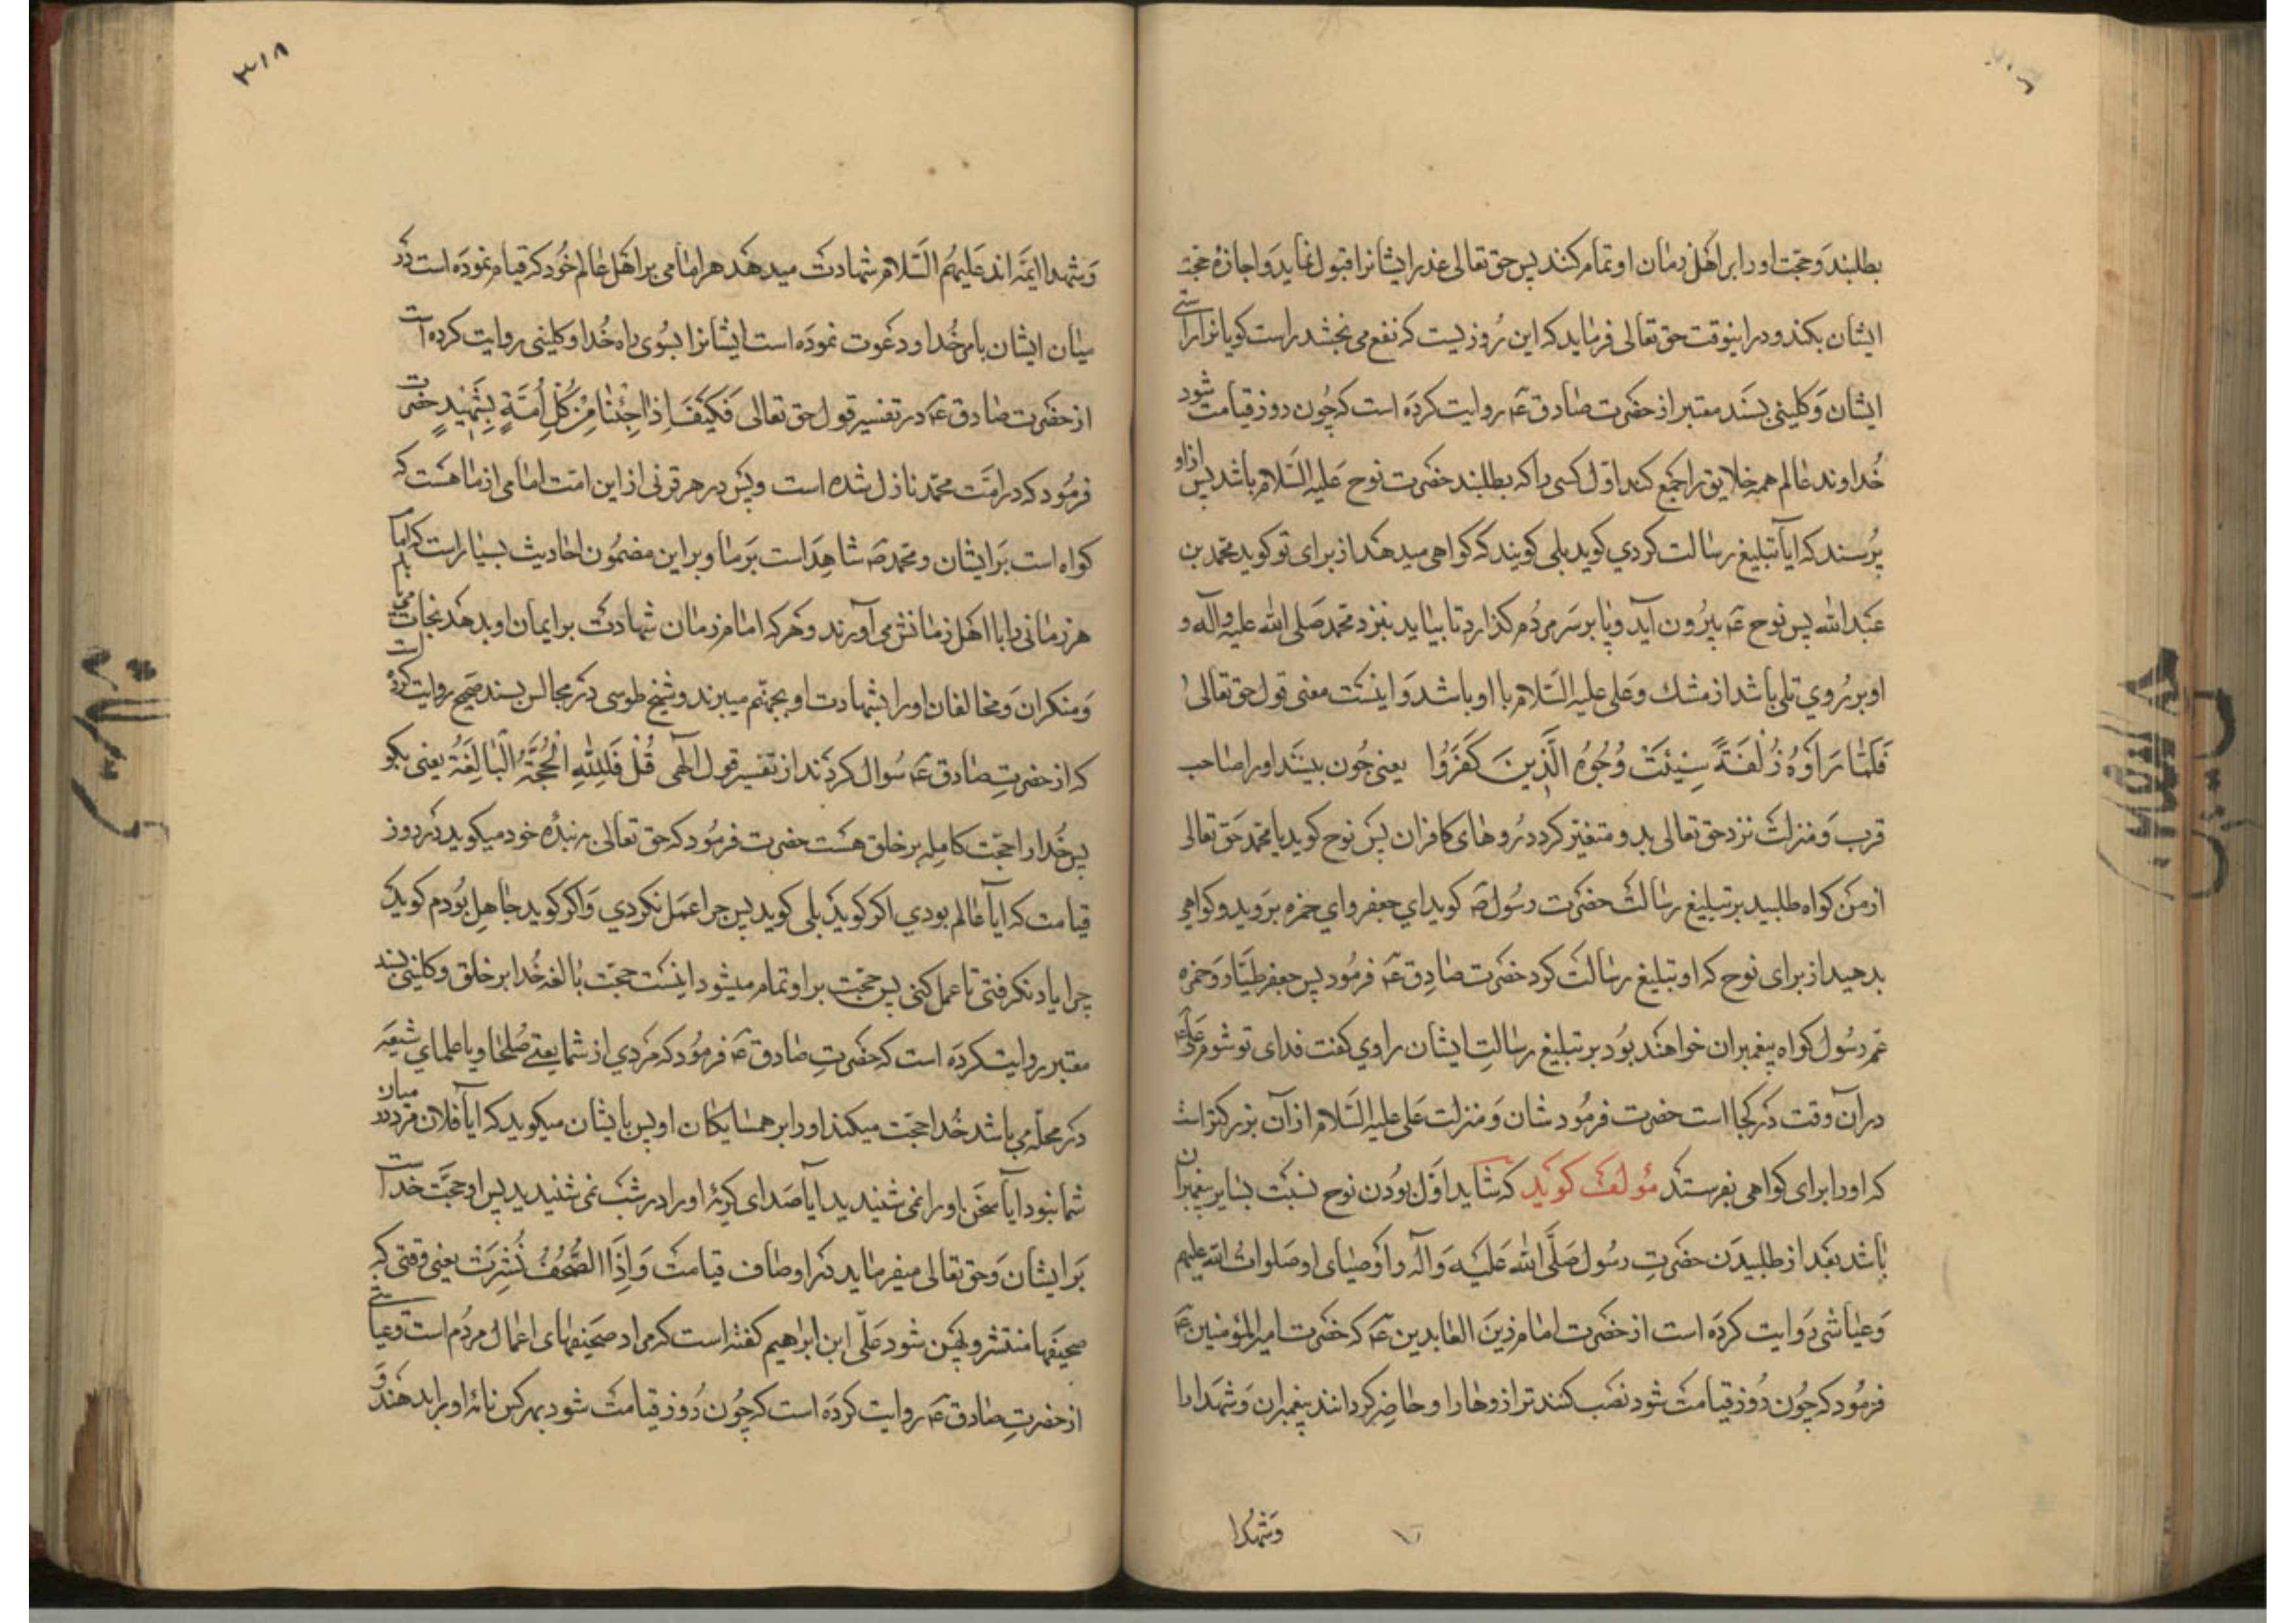 بطلبند و حجّت او را بر اهل زمان او تمام کنند پس حق تعالی عذر ایشانرا قبول نماید و اجازهٔ حجت
ایشان بکند و در اینوقت حق تعالی فرماید که این روزیست که نفع می بخشد راست کویانرا راستی
ایشان و کلینی بسند معتبر از حضرت صادق ع روایت کرده است که چون روز قیامت شود
خداوند عالم همه خلایق را جمع کند اوّل کسی را که بطلبند حضرت نوح علیه السّلام باشد پس از او
پرسند که آیا تبلیغ رسالت کردی کوید بلی کویند که کواهی میدهد از برای تو کوید محمّد بن
عبدالله پس نوح ع بیرون آید و پا بر سر مردم کذارد تا بیاید بنزد محمد صلی الله علیه و آله و
او بر روی تلی باشد از مشک و علی علیه السّلام با او باشد و اینست معنی قول حق تعالی
فَلَمّا رَاَوْهُ زُلْفَةً سِیئَتْ وُجُوهُ الَّذینَ کَفَرُوا یعنی چون بینند او را صاحب
قرب و منزلت نزد حق تعالی بد و متغیّر کردد روهای کافران پس نوح کوید یا محمّد حق تعالی
از من کواه طلبید بر تبلیغ رسالت حضرت رسول ص کوید ای جعفر و ای حمزه بروید و کواهی
بدهید از برای نوح که او تبلیغ رسالت کرد حضرت صادق ع فرمود پس جعفر طیّار و حمزه
عم رسول کواه پیغمبران خواهند بود بر تبلیغ رسالت ایشان راوی کفت فدای توشوم علی
در آن وقت در کجا است حضرت فرمود شان و منزلت علی علیه السّلام از آن بزرکتر است
که او را برای کواهی بفرستد مؤلف کوید که شاید اوّل بودن نوح نسبت بسایر پیغمبران
باشد بعد از طلبیدن حضرت رسول صلّی الله علیه و آله و اوصیای او صلوات الله علیهم
و عیاشی روایت کرده است از حضرت امام زین العابدین ع که حضرت امیر المؤمنین ع
فرمود که چون روز قیامت شود نصب کنند ترازوها را و حاضر کردانند پیغمبران و شهدا را
وشهدا
۳۱۸
و شهدا ایمّه اند علیهم السّلام شهادت میدهد هر امامی بر اهل عالم خود که قیام نموده است در
میان ایشان بامر خدا و دعوت نموده است ایشانرا بسوی راه خدا و کلینی روایت کرده است
از حضرت صادق ع در تفسیر قول حق تعالی فَکَیْفَ اِذا جِئْنا مِنْ کُلِّ اُمَّةٍ بِشَهیدٍ حضرت
فرمود که در امّت محمّد نازل شده است و پس در هر قرنی از این امّت امامی از ما هست که
کواه است بر ایشان و محمّد ص شاهد است بر ما و بر این مضمون احادیث بسیار است که امام
هر زمانی را با اهل زمانش می آورند و هر که امام زمان شهادت بر ایمان او بدهد نجات می یابد
و منکران و مخالفان او را بشهادت او بجهنّم میبرند و شیخ طوسی در مجالس بسند صحیح روایت کرده است
که از حضرت صادق ع سوال کردند از تفسیر قول الهی قُلْ فَلِلّهِ الْحُجَّةُ الْبالِغَةُ یعنی بکو
پس خدا را حجّت کامله بر خلق هست حضرت فرمود که حق تعالی ببندهٔ خود میکوید در روز
قیامت که آیا عالم بودی اکر کوید بلی کوید پس چرا عمل نکردی و اکر کوید جاهل بودم کوید که
چرا یاد نکرفتی تا عمل کنی پس حجّت بر او تمام میشود اینست حجّت بالغه خدا بر خلق و کلینی بسند
معتبر روایت کرده است که حضرت صادق ع فرمود که مردی از شما یعنی صلحا و یا علمای شیعه
در محلّه می باشد خدا حجّت میکند او را بر همسایکان او پس بایشان میکوید که آیا فلان مرد در میان
شما نبود آیا سخن او را نمی شنیدید آیا صدای کریهٔ او را در شب نمی شنیدید پس او حجّت خدا است
بر ایشان و حق تعالی میفرماید در اوصاف قیامت وَ اِذَا الصُّحُفُ نُشِرَتْ یعنی وقتی که
صحیفها منتشر و پهن شود علی ابن ابراهیم کفته است که مراد صحیفهای اعمال مردم است و عیاشی
از حضرت صادق ع روایت کرده است که چون روز قیامت شود بهر کس نامهٔ او را بدهند و